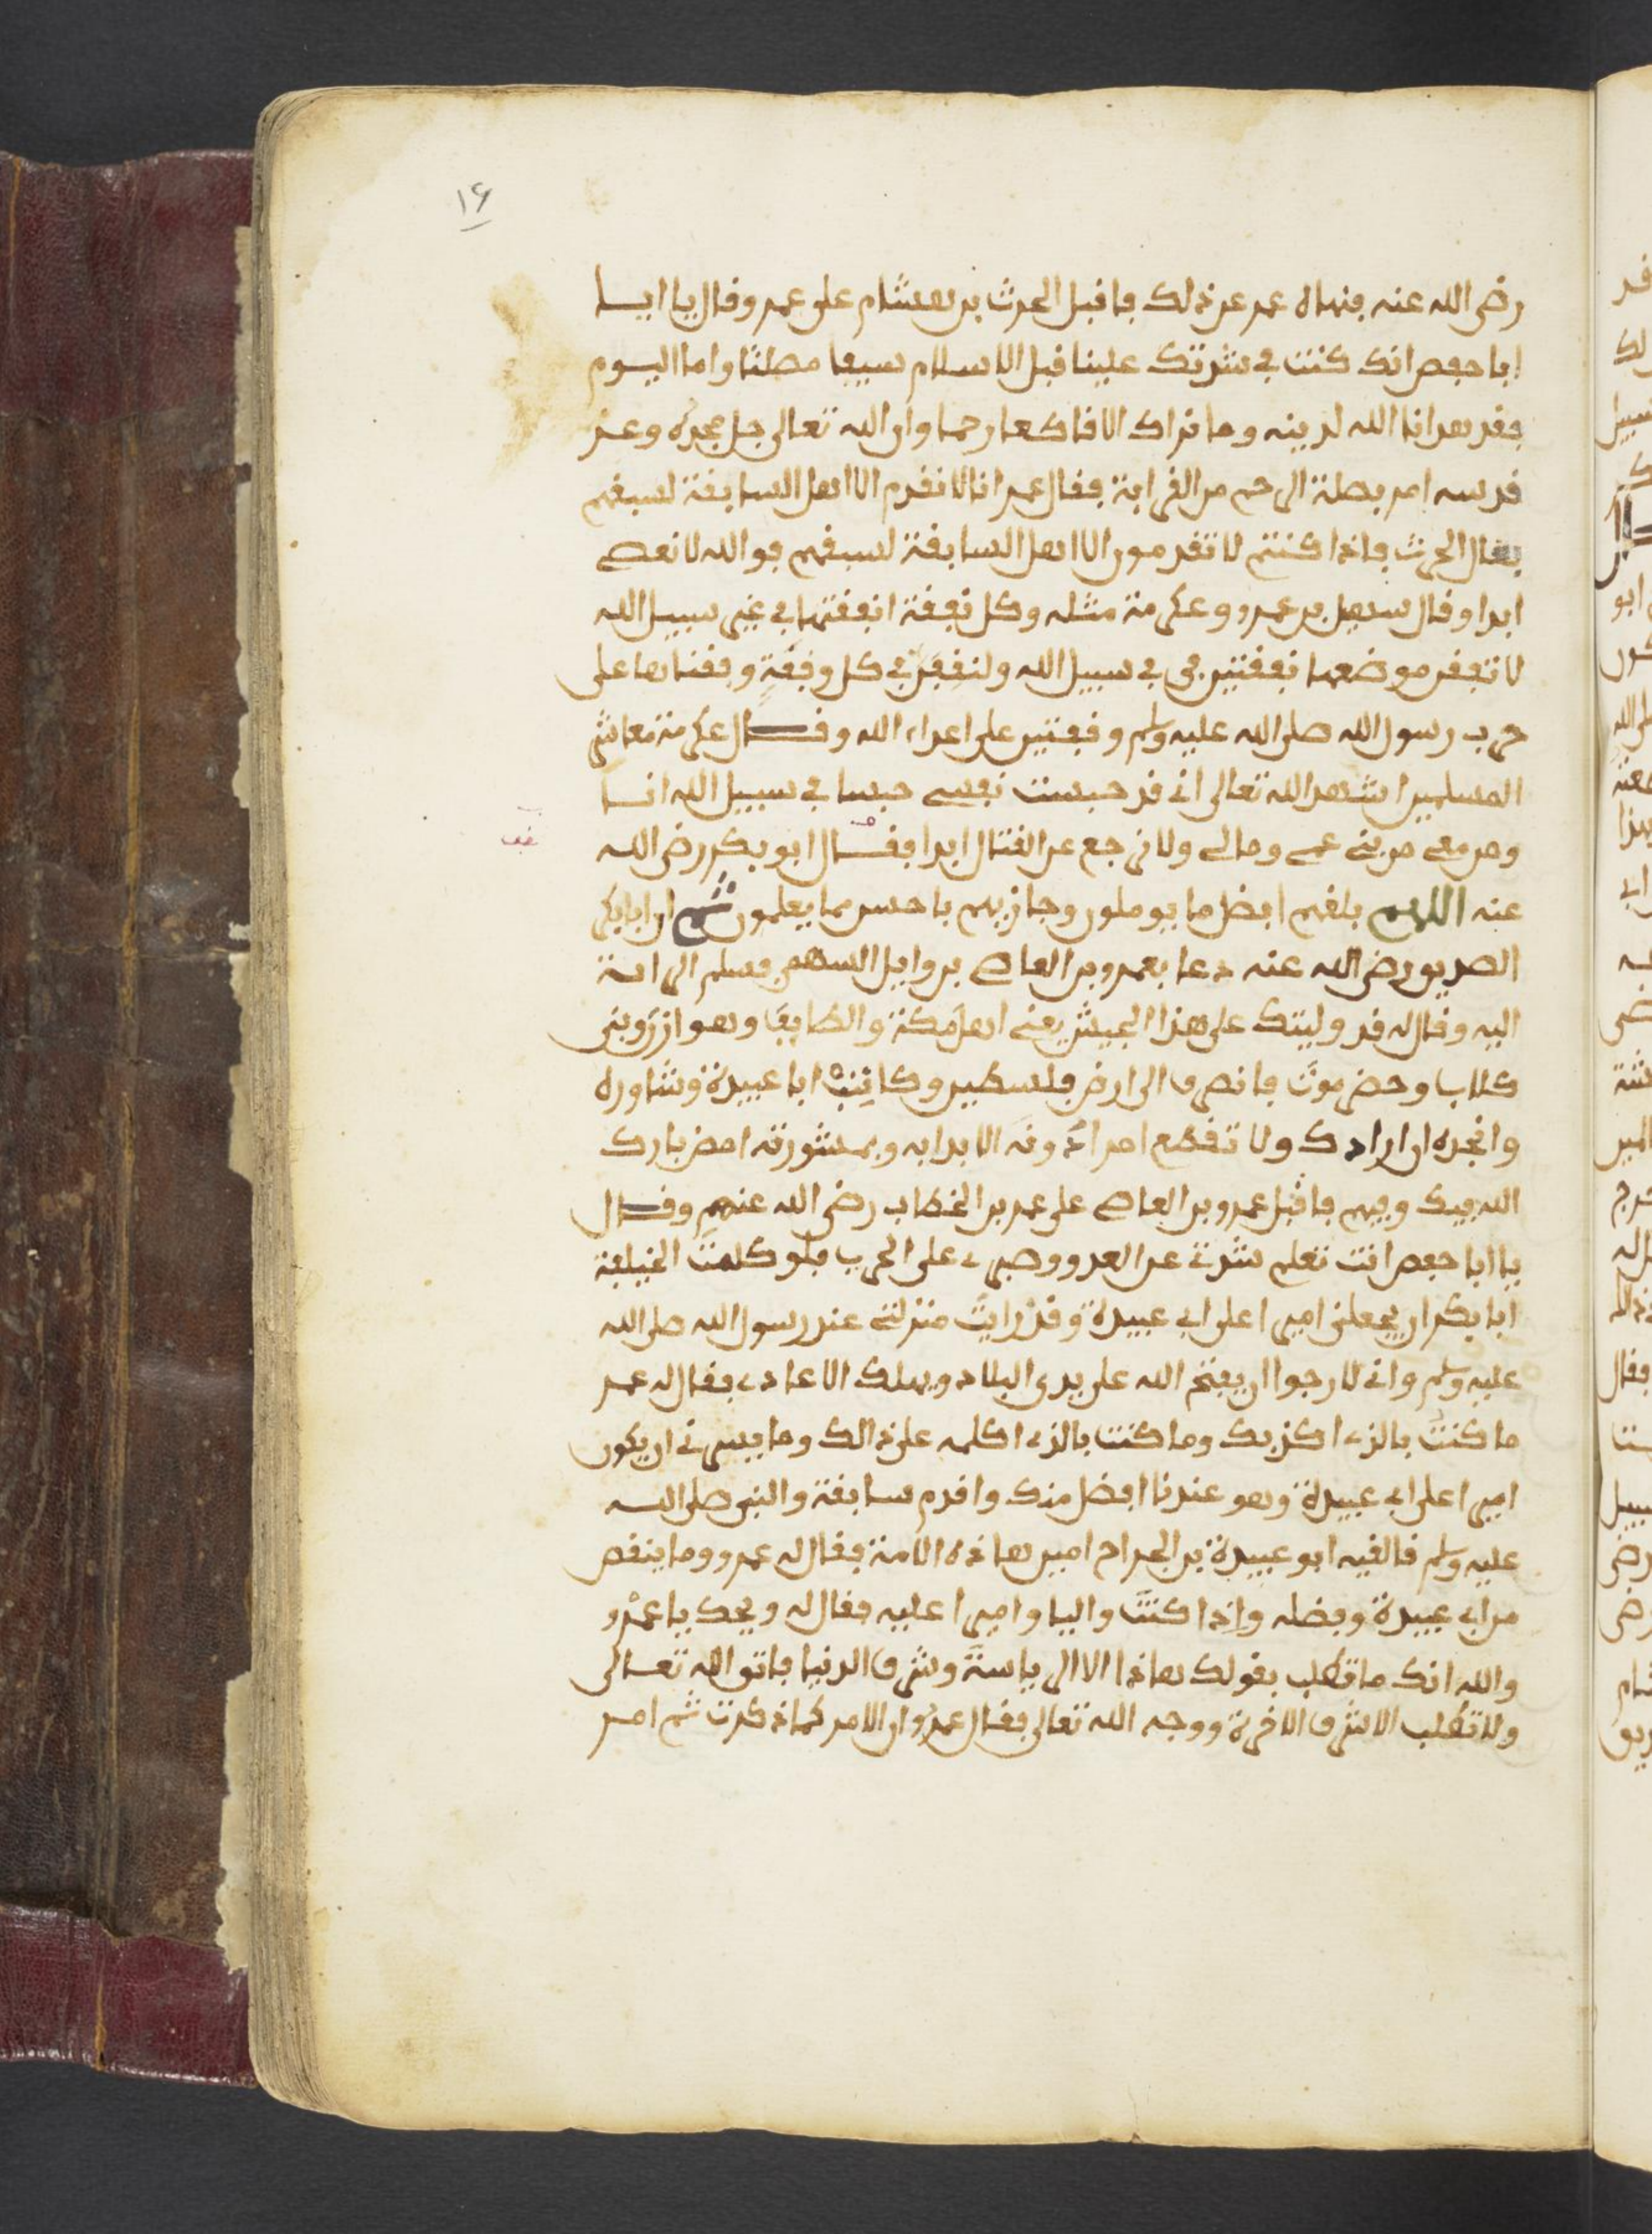 ١٤
رضى الله عنه فنهاه عمر عن ذلك فاقبل الحرث بن هشام على عمر وقال يا ايا
ابا حفص انك كنت في شدتك علينا قبل الاسلام سيفا مصلتا واما اليوم
فقد هدانا الله لدينه وما نراك الا قاطعا رحما وان الله تعالى جل مجده وعز
قدسه امر بصلة الرحم من القرابة فقال عمر انا لا نقدم الا اهل السابقة لسبقهم
فقال الحرث فاذا كنتم لا تقدمون الا اهل السابقة لسبقهم فوالله لا نعصے
ابدا وقال سهيل بن عمرو وعكرمة مثله وكل نفقة انفقتها في غير سبيل الله
لا نفقن موضعها نفقتين في سبيل الله ولنقفن في كل وقفة وقفناها على
حرب رسول الله صلى الله عليه وسلم وقفتين على اعداء الله وقال عكرمة معاشر
المسلمين اشهد الله تعالى انى قد حبست نفسے حبسا في سبيل الله انا
ومن معى من بنى عمے ومالے ولا نرجع عن القتال ابدا فقال ابو بكر رضى الله
عنه اللهم بلغهم افضل ما يوملون وجازيهم باحسن ما يعلمون ثم ان ابا بكر
الصديق رضى الله عنه دعا بعمرو بن العاص بن وايل السهمي فسلم الراية
اليه وقال له قد وليتك على هذا الجيش يعنى اهل مكة والطايف وهوازن وبنى
كلاب وحضرموت فانصرف الى ارض فلسطين وكاتب ابا عبيدة وشاوره
وانجده ان ارادك ولا تقطع امرا دونه الا برايه وبمشورته امض بارك
الله فيك وفيهم فاقبل عمرو بن العاص على عمر بن الخطاب رضى الله عنهم وقال
يا ابا حفص انت تعلم شدتى على العدو وصبرى على الحرب فلو كلمت الخليفة
ابا بكر ان يجعلنى اميرا على ابى عبيدة وقد رايت منزلتى عند رسول الله صلى الله
عليه وسلم وانى لارجوا ان يفتح الله على يدى البلاد ويهلك الاعادى فقال له عمر
ما كنت بالذى اكذبك وما كنت بالذى اكلمه على ذالك وما يسرنى ان يكون
اميرا على ابى عبيدة وهو عندنا افضل منك واقدم سابقة والنبى صلى الله
عليه وسلم قال فيه ابو عبيدة بن الجراح امين هاذه الامة فقال له عمرو وما ينقص
من ابى عبيدة وفضله واذا كنت واليا واميرا عليه فقال له ويحك يا عمرو
والله انك ما تطلب بقولك هاذا الا الرياسة وشرف الدنيا فاتق الله تعالى
ولا تطلب الا شرف الاخرة ووجه الله تعالى فقال عمرو ان الامر كما ذكرت ثم امر